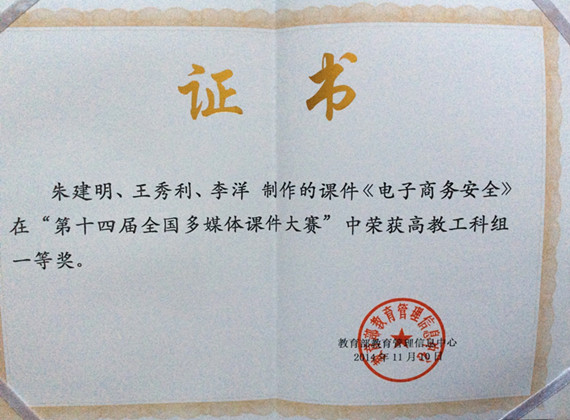 证书
朱建明、王秀利、李洋 制作的课件《电子商务安全》
在“第十四届全国多媒体课件大赛”中荣获高教工科组
一等奖。
教育部教育管理信息中心
教育部教育管理信息中心
2014年11月10日